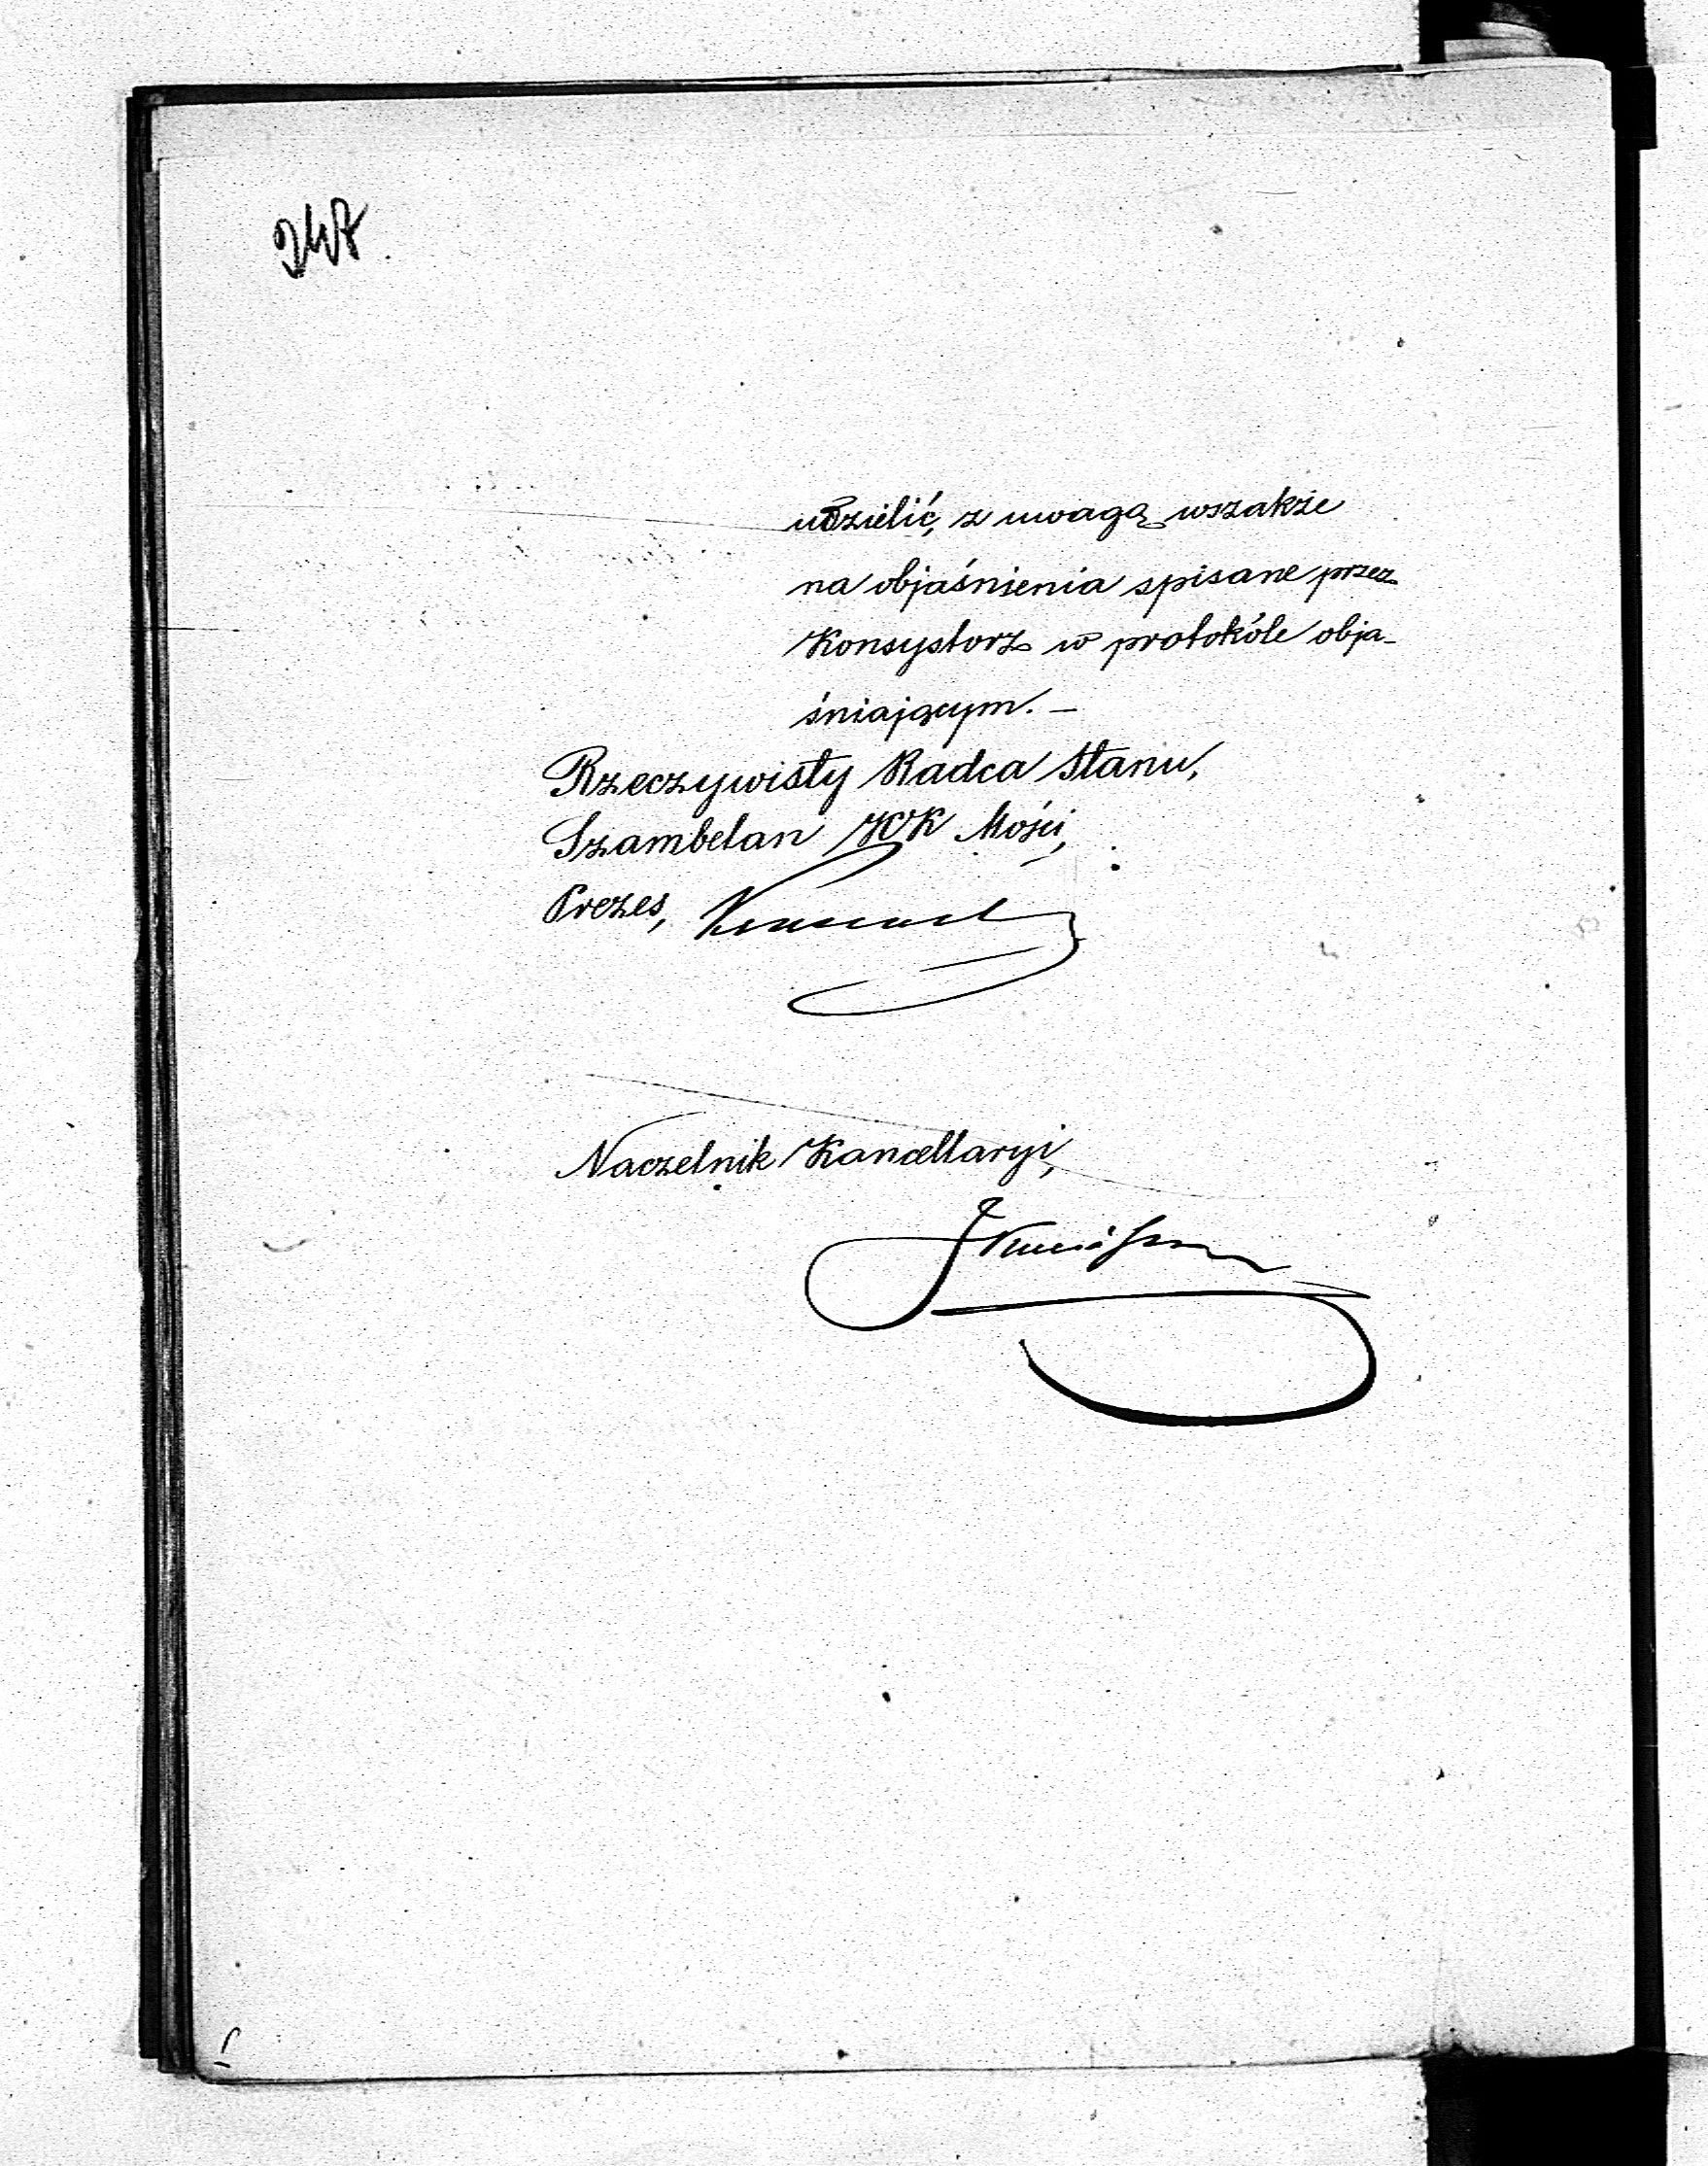 udzielić, z uwagą wszakże
na objaśnienia spisane przez
Konsystorz w protokóle obja-
śniającym. —
Rzeczywisty Radca Stanu,
Szambelan JCK Mości,
Prezes,
Naczelnik Kancellaryi,